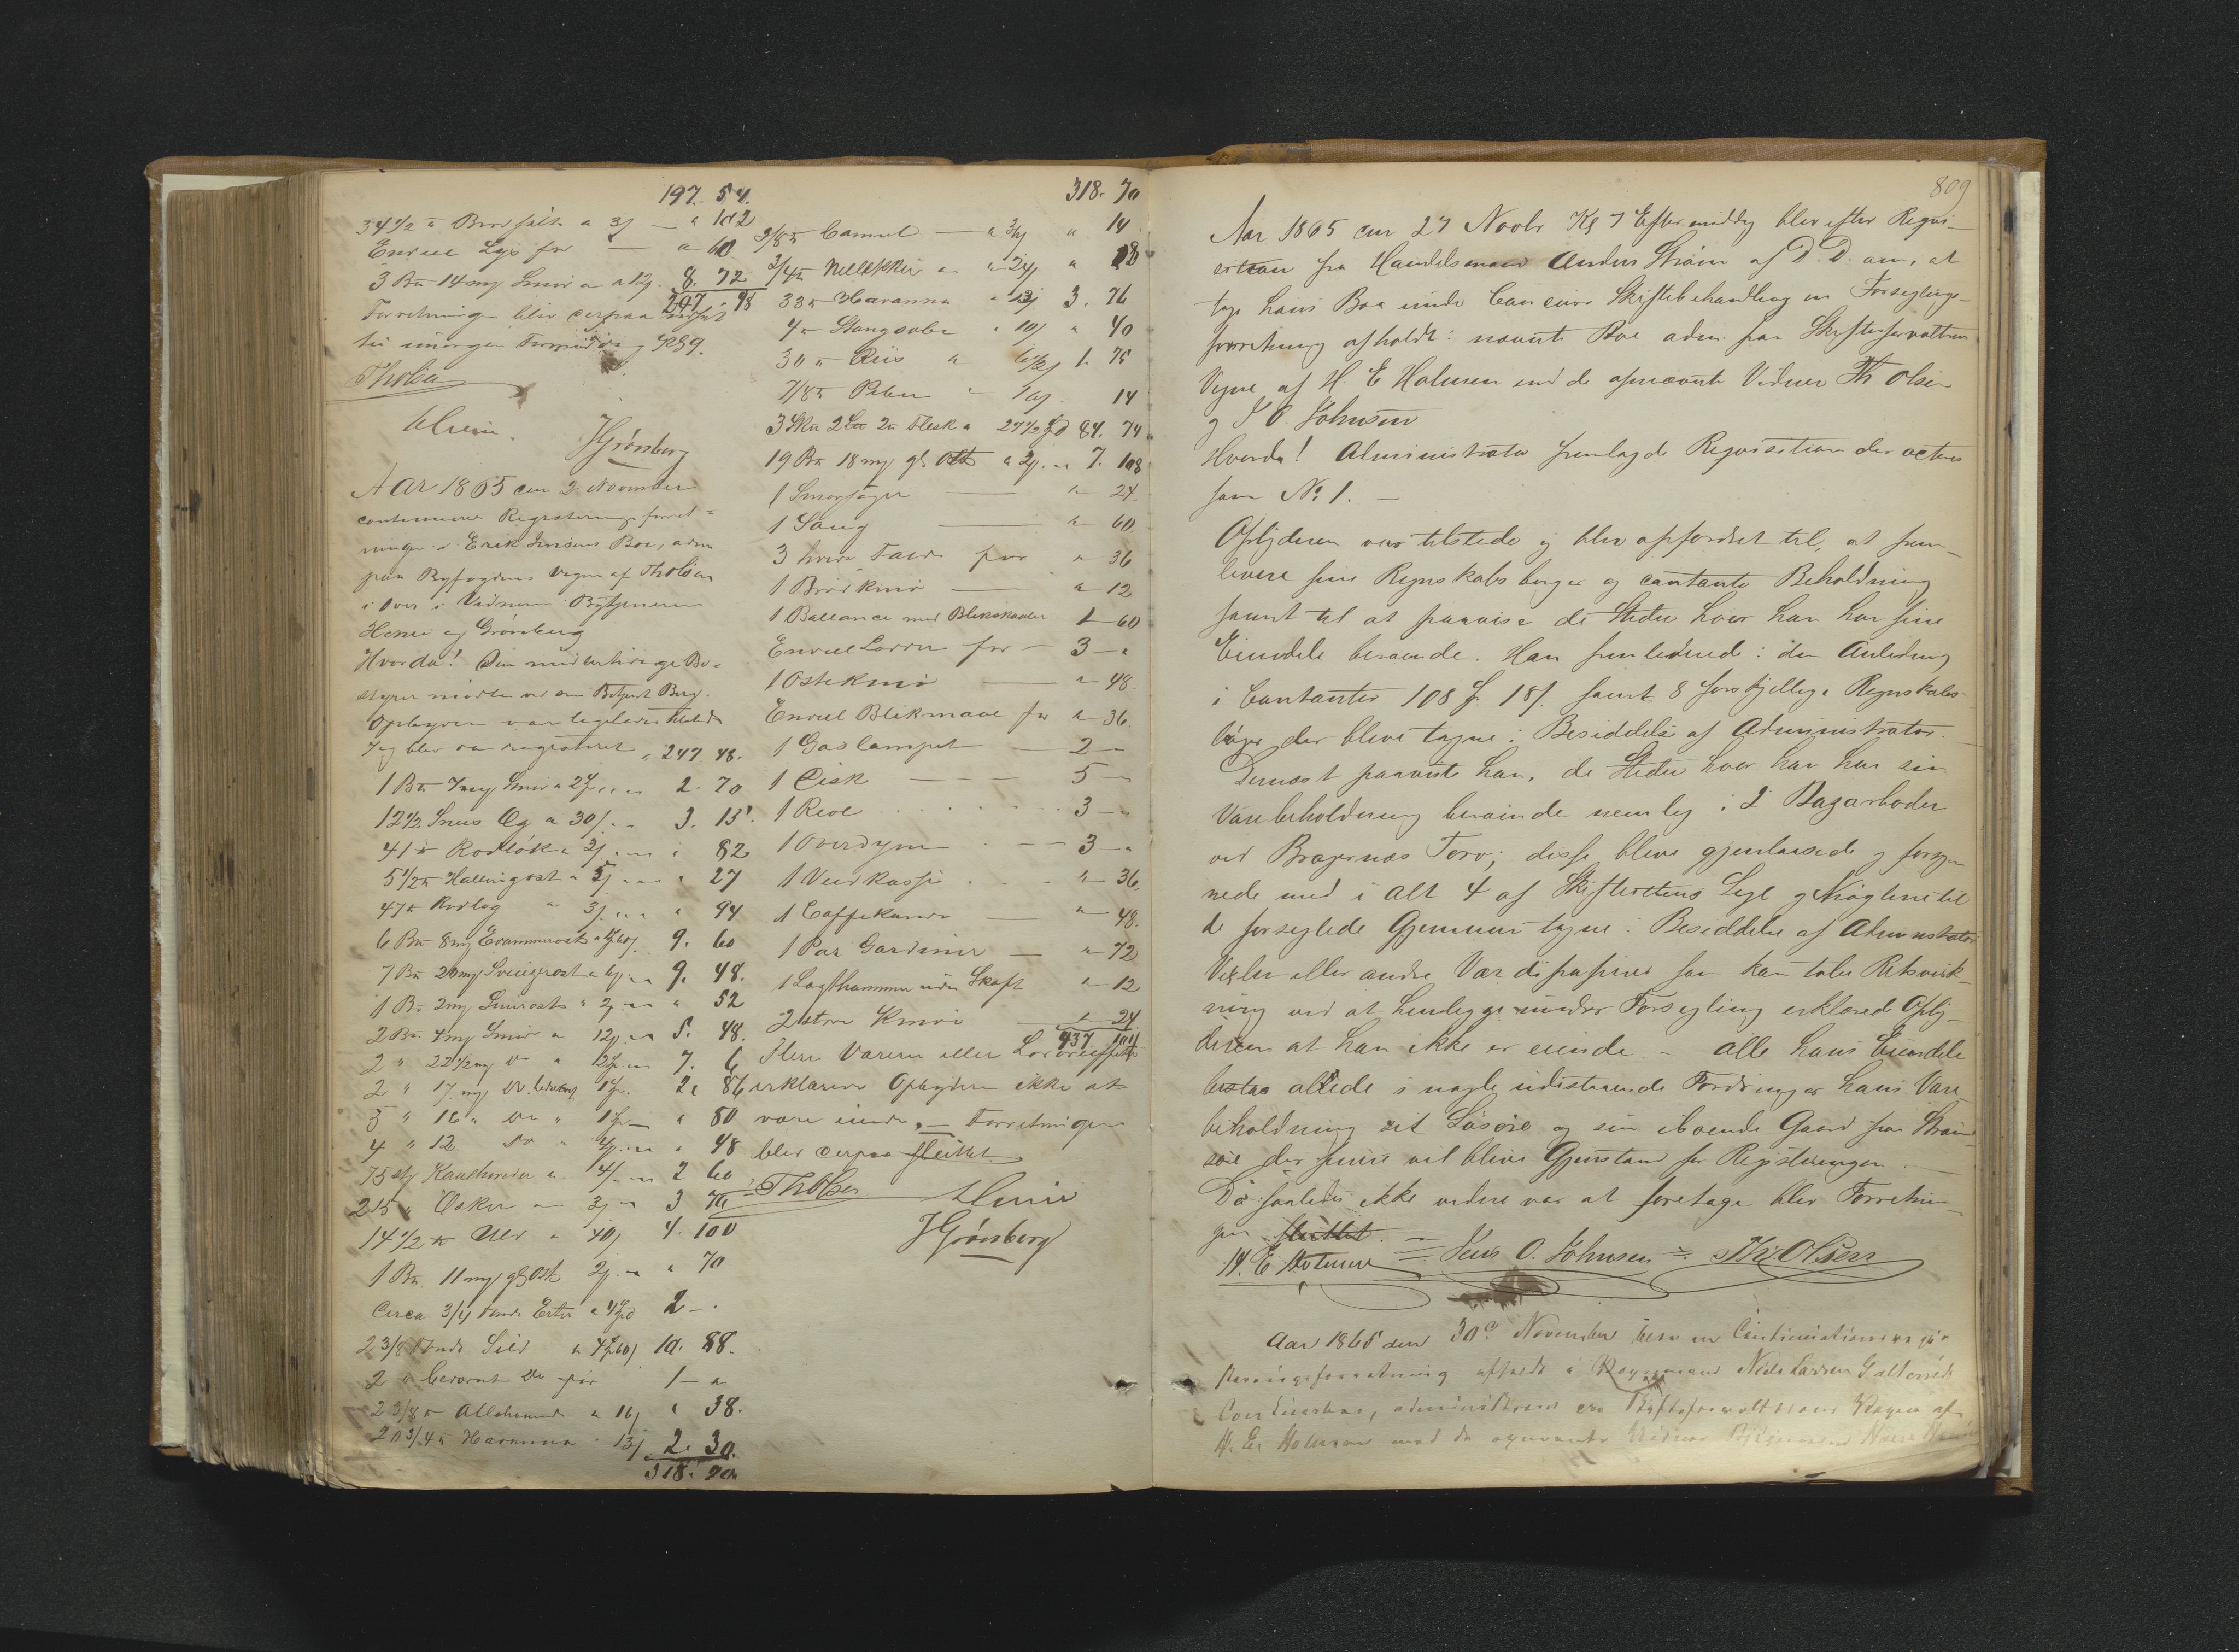 197. 54.
34 1/2 " a 3/ — " 102
Enveel Lys for — " 60
3 B 14 my Smør a 12/. 8. 72
247. 48
Forretningen blev derpaa udsat
til imorgen Formiddag Kl 9.
ThOlsen
HGrønberg
Aar 1865 den 2 November
continueredes Registreringsforret=
ningen i Erik Boe, adm
paa Byfogdens Vegne af ThOlsen
i Over: af Vidnerne
og Grønberg
Hvorda! Den midlertidige Be=
styrer mødte ved Berg.
Opbyderen var ligeledes tilstede
Og blev da registreret " 247. 48.
1 B 7 my Smør a 2 2. 70
12 1/2 Snees Æg a 30/. " 3. 15.
41 Rødløk a 2/. " 82
5 1/2 Hallingost a 5/ " 27
47 Rødløg a 3/. " 94
6 B 8 my a 60/. 9. 60
7 B 20 my a 9. 48.
1 B 2 my a 2/. " 52
2 B 4 my Smør a 12/. 5. 48.
2 " 22 1/2 my Do a 12/. 7. 6
2 " 17 my Do 2. 86
5 " 16 " Do " " 80
4 " 12 Do " " 48
75 sty a 4/. 2 60
215 " Æsker a 3/ 3 76
14 1/2 Uld a 40/ 4. 100
1 B 11 my Ost 2/. " 70
Circa 3/4 Tønde Erter a 4 2 — .
2 3/8 Tønde Sild a 4 60/ 10. 88.
2 " Do for 1 — "
2 3/8 Allehaande a 16/ " 38.
20 3/4 Havanna " 13/ 2. 30.
318. 70
318. 70
3/8 Camel — a 36/ " 14
3/4 Nelliker a 24/ " 18
33 Havanna a 13/ 3. 76
4 Stangsæbe " 10/ " 40
30 Riis a 6 1/2/ 1. 75
7/8 Peber " 16/ 14
3 Sk 2 2 Flesk a 27 1/2 84. 74
19 B 18 my Ost a 2/. 7. 108
1 — " 24.
1 Saug — " 60
3 hvide for " 36
1 Brødkniv — " 12
1 Ballance med Blikskaaler 1 — 60
Enveel for — 3 — "
1 Ostekniv — " 48.
Enveel Blikmaal for " 36.
1 Gaslampet — 2 —
1 Disk — 5 —
1 Reol 3 — "
1 Overdyne — 3 — "
1 Vedkasse " 36.
1 Caffekande — " 48.
1 Par Gardiner — " 72
1 uden Skaft " 12
2 store Knive — " 24
437 101
Flere Varer eller
erklærede Opbyderen ikke at
være eiende. — Forretningen
blev derpaa sluttet
ThOlsen
HGrønberg
809
Aar 1865 den 27 Novbr Kl 7 Eftermiddag blev efter Requi-
sition fra Handelsmand Anders Strøm af D. D. om, at
tage hans Boe under Concurs Skiftebehandling en Forseglings-
forretning afholdt i nævnte Boe adm. paa Skifteforvalterens
Vegne af H. E Holmsen med de opnævnte Vidner Th Olsen
og J O. Johnsen
Hvorda! Administrator fremlagde Requisitionen der acteres
som No 1. —
Opbyderen var tilstede og blev opfordret til, at frem-
levere sine Regnskabsbøger og contante Beholdning
samt til at paavise de Steder hvor han har sine
Eiendele beroende. Han fremleverede i den Anledning
i Contanter 108 18/. samt 8 forskjellige Regnskabs-
bøger der bleve tagne i Besiddelse af Administrator. —
Dernæst paaviste han, de Steder hvor han har sin
Varebeholdning beroende nemlig i 2 Bazarboder
ved Bragernæs Torv; disse bleve gjenlaasede og forsy-
nede med i Alt 4 af Skifterettens Segl og Nøglerne til
de forseglede Gjemmer tagne i Besiddelse af Administrator
Vexler eller andre Værdipapirer som kan tabe Retsvirk-
ning ved at henligge under Forsegling erklæred Opby-
deren at han ikke er eiende. — Alle hans Eiendele
bestaa allede i nogle udestaaende Fordringer hans Vare-
beholdning sit Løsøre og sin iboende Gaard paa Strøm-
søe der senere vil blive Gjenstand for Registreringen. —
Da saaledes ikke videre var at foretage blev Forretnin-
gen sluttet. —
H. E Holmsen = Jens O. Johnsen = Th. Olsen
Aar 1865 den 30te November blev en Continuations regi-
streringsforretning afholdt i Niels Larsen
Concursboe, administreret paa Skifteforvalterens Vegne af
H. E. Holmsen med de opnævnte Vidner